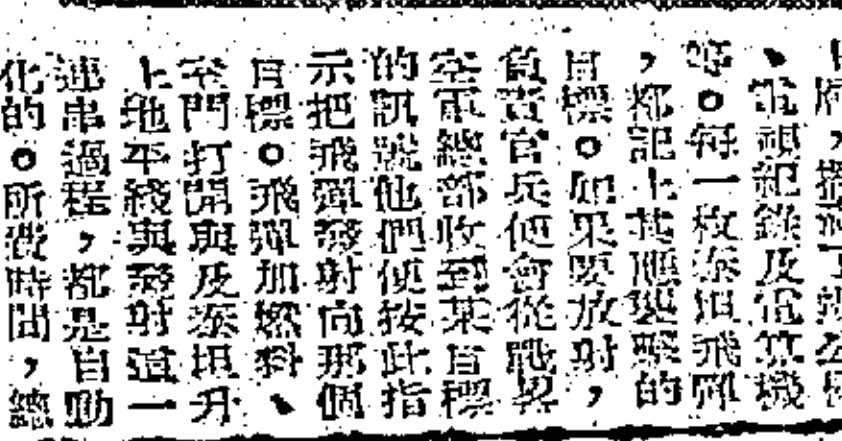 、電視紀錄及電算機
等。每一枚泰坦飛彈
，都記上其應襲擊的
目標。如果要放射，
負責官兵便會從戰畧
空軍總部收到某目標
的訊號他們便按此指
示把飛彈發射向那個
目標。飛彈加燃料、
至門打開與及泰坦升
上地平綫與發射道一
連串過程，都是自動
化的。所費時間，總